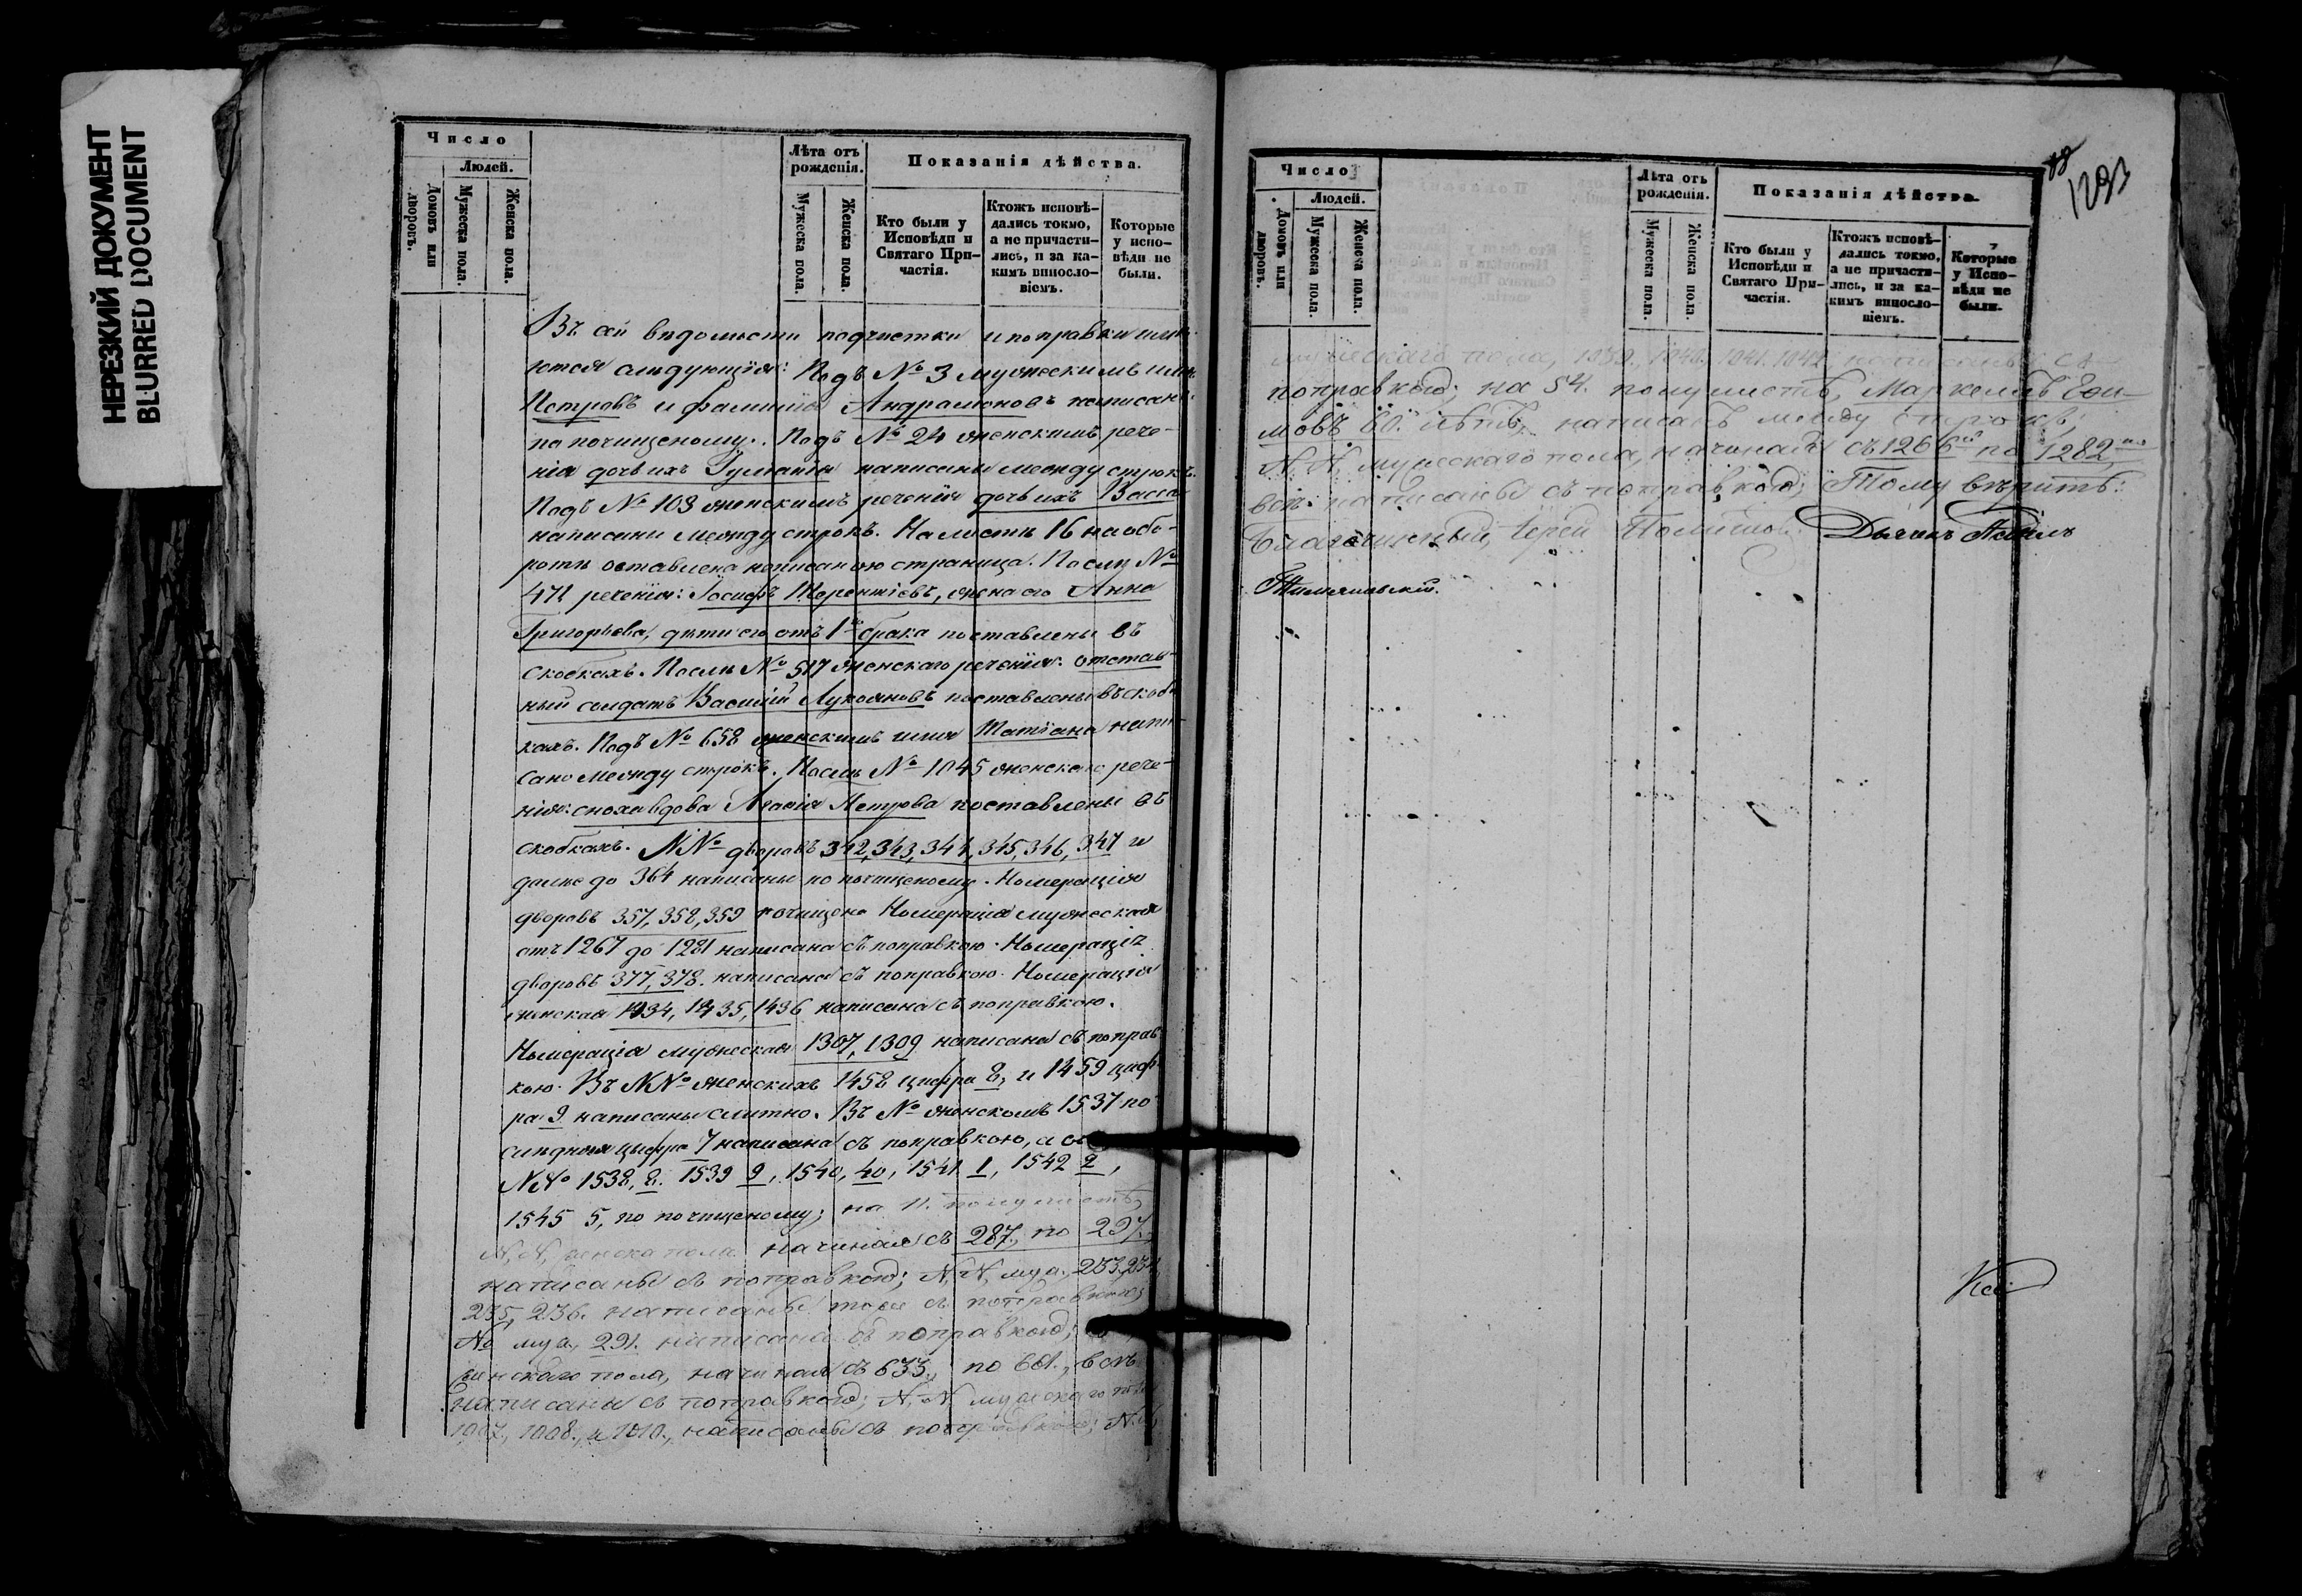 НЕРЕЗКИЙ ДОКУМЕНТ
BLURRED DOCUMENT
Число
Людей.
Домовъ или дворовъ.
Мужеска пола.
Женска пола.
Лѣта отъ рожденія.
Мужеска пола.
Женска пола.
Показанія дѣйства.
Кто были у Исповѣди и Святаго Причастія.
Ктожъ исповѣдались токмо, а не причастились, и за какимъ винословіемъ.
Которые у исповѣди не были.
Въ сей вѣдомости подчистки и поправки имѣ-
ются слѣдующія: Подъ № 3 мужескимъ имя
Петровъ и фамилія Андрамоновъ написаны
по почищеному. Подъ № 24 женскимъ рече-
нія дочь ихъ написаны между строкъ.
Подъ № 103 женскимъ реченія дочь ихъ Васса
написаны между строкъ. На листѣ 16 на обо-
ротѣ оставлена написаною страница. Послѣ №
471 реченія: Іосифъ Терентіевъ, жена его Анна
Григорьева, дѣти его отъ 1го брака поставлены въ
скобкахъ. Послѣ № 517 женскаго реченія: отстав-
ный солдатъ Василій Лукояновъ поставлены въ скоб-
кахъ. Подъ № 658 женскимъ имя Татіана напи-
сано между строкъ. Послѣ № 1045 женскаго рече-
нія: сноха вдова Петрова поставлены въ
скобкахъ. №№ дворовъ 342, 343, 344, 345, 346, 347 и
далѣе до 364 написаны по почищеному. Номерація
дворовъ 357, 358, 359 почищена Номерація мужеская
отъ 1267 до 1281 написана съ поправкою. Номерація
дворовъ 377, 378. написана съ поправкою. Номерація
женская 1434, 1435, 1436 написана съ поправкою.
Номерація мужеская 1307, 1309 написана съ поправ-
кою. Въ №№ женскихъ 1458 цифра 8, и 1459 циф-
ра 9 написаны слитно. Въ № женскомъ 1537 по-
слѣдняя цифра 7 написана съ поправкою, а
№№ 1538, 8. 1539 9, 1540, 40, 1541 1, 1542 2,
1545 5, по почищеному; на 11. полулистѣ,
N, N, женска пола начиная съ 287, по 297.,
написаны съ поправкою; N, N, муж. 233, 234,
235, 236. написаны тоже съ поправкою;
№ муж. 291. написана съ поправкою;
женскаго пола, начиная съ 633., по 661., всѣ
написаны съ поправкою; N, N мужескаго пола
1007, 1008, и 1010., написаны съ поправкою; N. N,
Число
Людей.
Домовъ или дворовъ.
Мужеска пола.
Женска пола.
Лѣта отъ рожденія.
Мужеска пола.
Женска пола.
Показанія дѣйства.
Кто были у Исповѣди и Святаго Причастія.
Ктожъ исповѣдались токмо, а не причастились, и за какимъ винословіемъ.
Которые у Исповѣди не были.
1293
мужескаго пола, 1039., 1040. 1041. 1042 написаны съ
поправкою; на 54. полулистѣ, Маркеллъ Ефи-
мовъ 60. лѣтъ, написанъ между строкъ;
N. N, мужескаго пола, начиная съ 1266й по 1282
всѣ написаны съ поправкою; Тому вѣрить:
Благочинный, Іерей Дьячекъ Павелъ